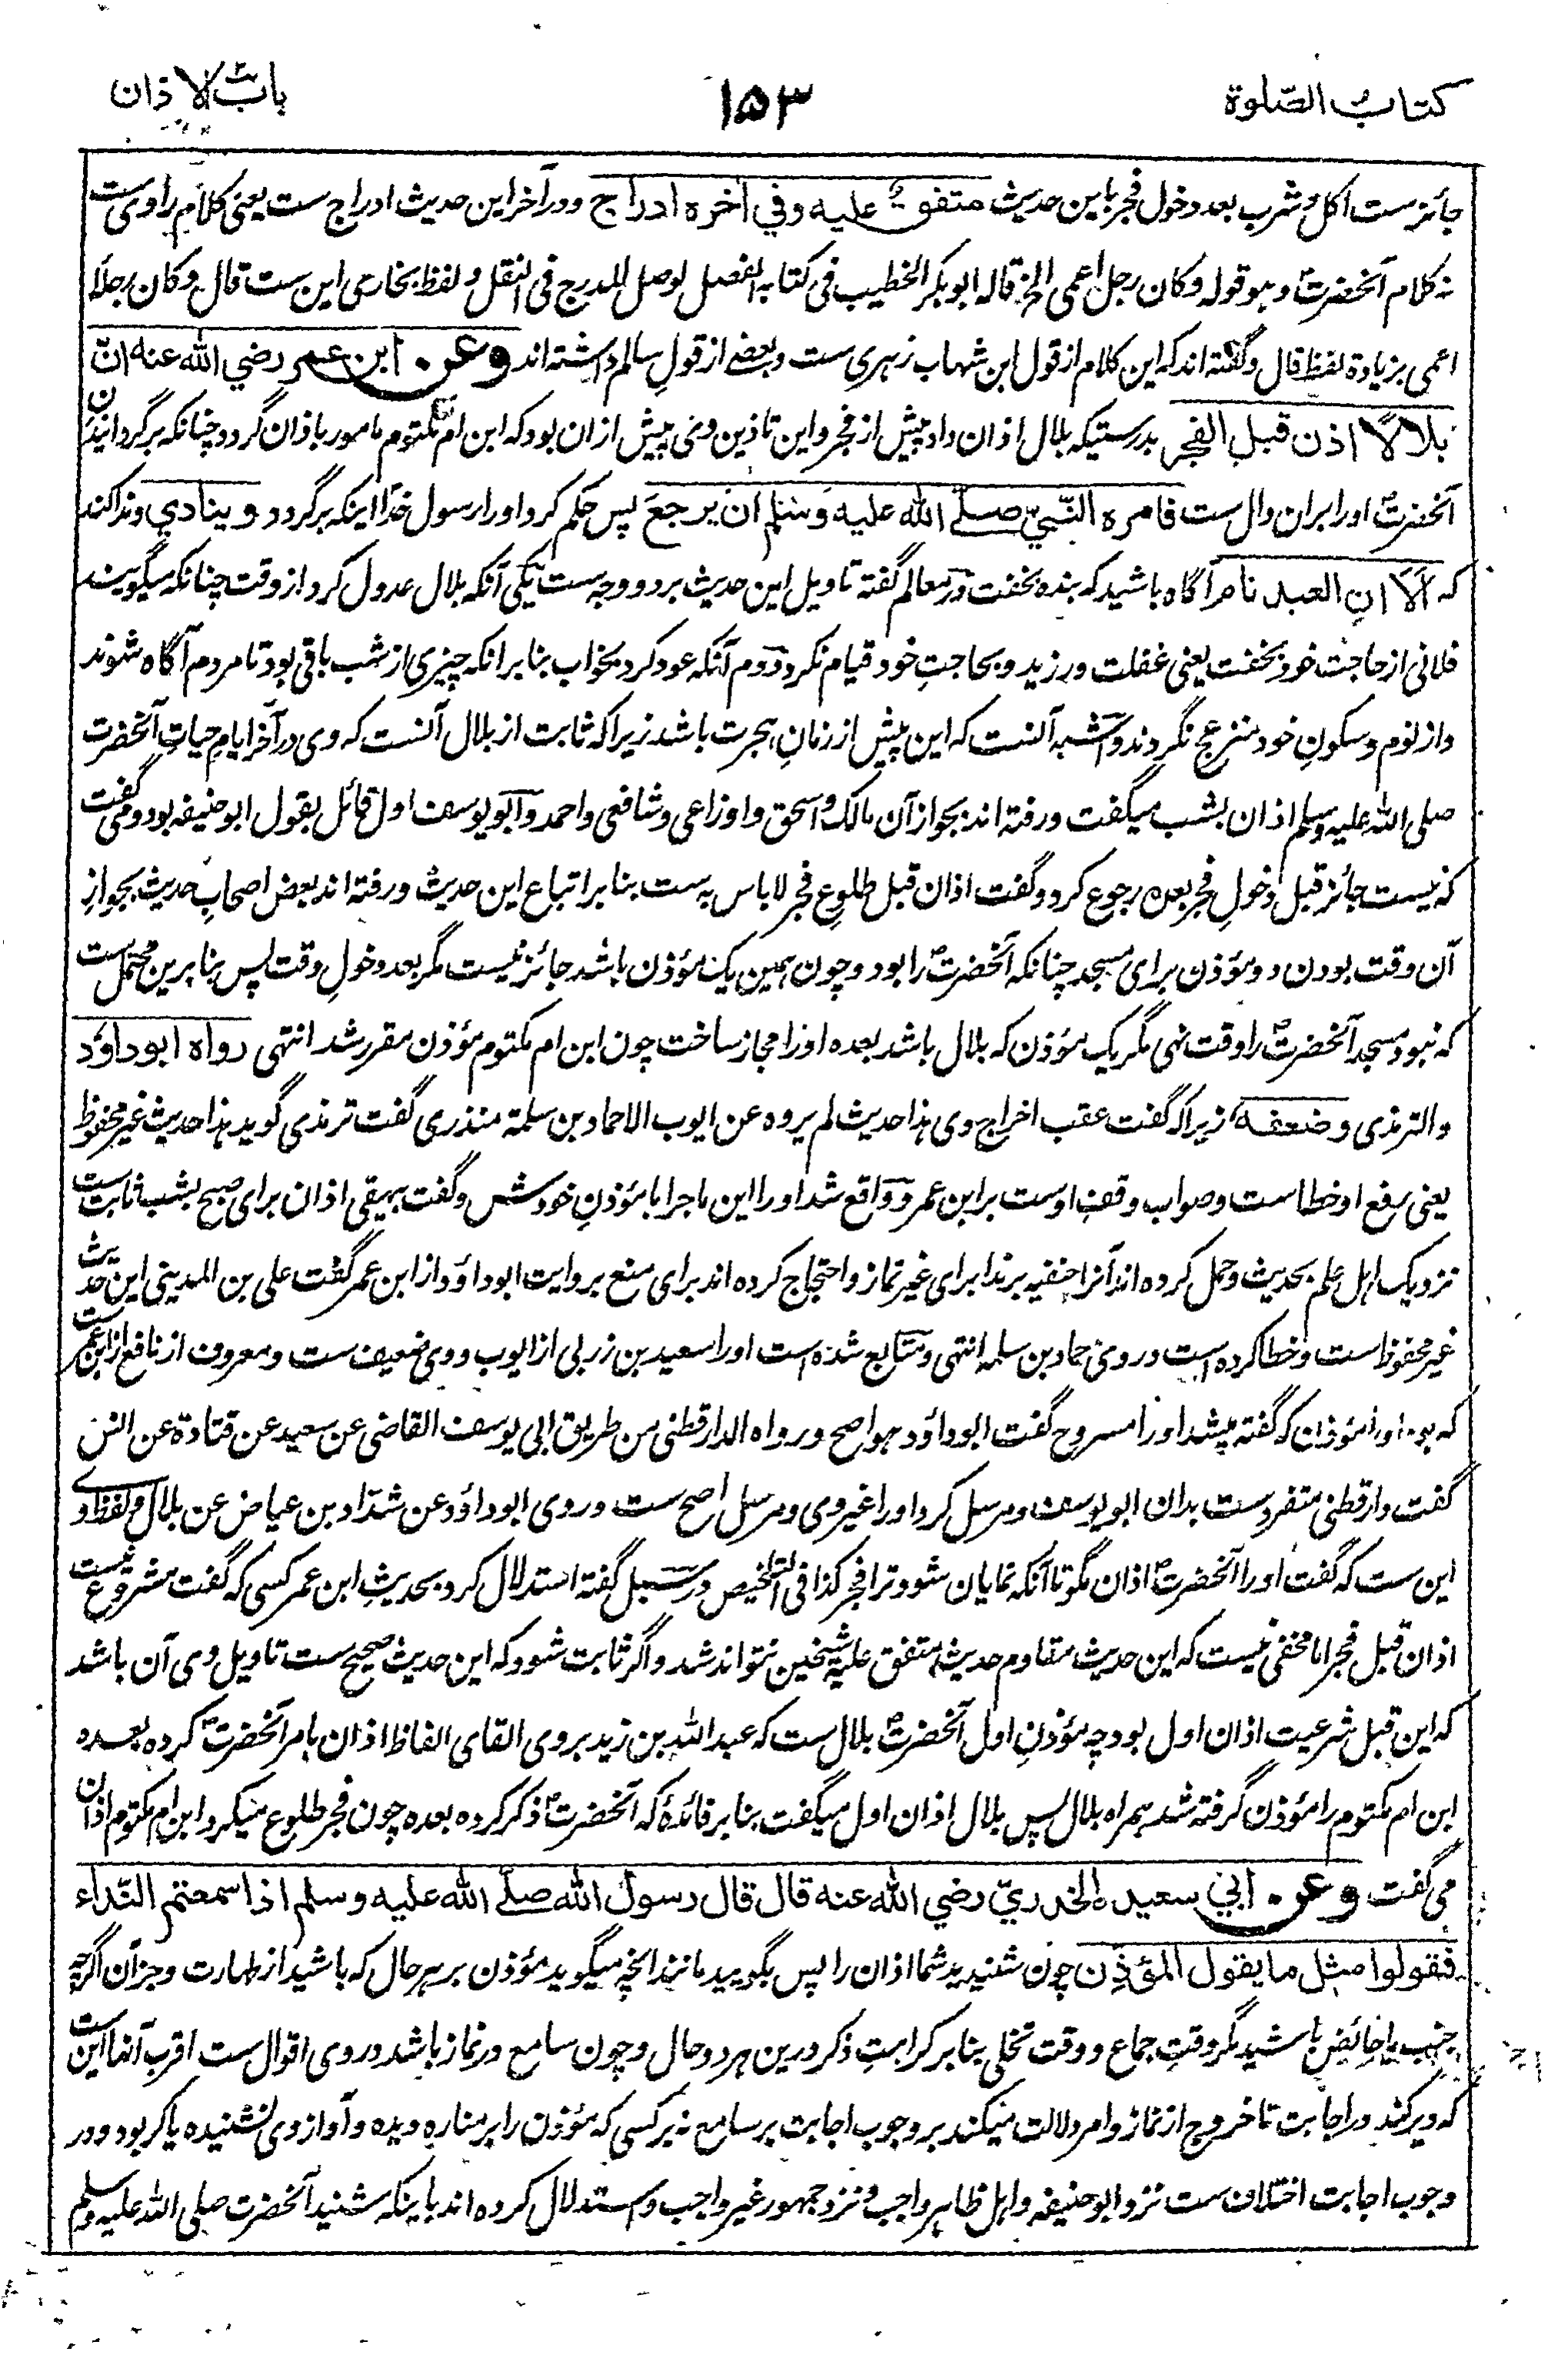 کتاب الصّلوة
۱۵۳
باب الاذان
جائز ست اکل و شرب بعد دخول فجر باین حدیث متفق علیه وفي آخره ادراج و در آخر این حدیث ادراج ست یعنی کلام راوی ست
نه کلام آنحضرتؐ و هو قوله و کان رجل اعمی الخ قاله ابوبکر الخطیب فی کتابه الفصل لوصل المدرج فی النقل و لفظ بخاری این ست قال و کان رجلا
اعمی بزیادة لفظ قال و گفته اند که این کلام از قول ابن شهاب زهری ست و بعضے از قول سالم داشته اند وعن ابن عمر رضي الله عنه انّ
بلالاً اذن قبل الفجر بدرستیکه بلال اذان داد پیش از فجر و این تاذین وی پیش ازان بود که ابن ام مکتوم مامور باذان گردد چنانکه برگردانیدن
آنحضرتؐ اورا بران دال ست فامره النّبيّ صلے الله علیه وسلم ان یرجع پس حکم کرد اورا رسول خدا اینکه برگردد وینادي و ندا کند
که اَلَا انّ العبد نام آگاه باشید که بنده بخفت در معالم گفته تاویل این حدیث بر دو وجه ست یکی آنکه بلال عدول کرد از وقت چنانکه میگویند
فلانی از حاجت خود بخفت یعنی غفلت ورزید و بحاجت خود قیام نکرد دوم آنکه عود کرد بخواب بنابر آنکه چیزی از شب باقی بود تا مردم آگاه شوند
و از نوم و سکون خود منزعج نگردند و اشبه آنست که این پیش از زمان هجرت باشد زیراکه ثابت از بلال آنست که وی در آخر ایام حیات آنحضرت
صلی الله علیه وسلم اذان بشب میگفت و رفته اند بجواز آن مالک و اسحق و اوزاعی و شافعی و احمد و ابو یوسف اول قائل بقول ابو حنیفه بود و می گفت
که نیست جائز قبل دخول فجر بعده رجوع کرد و گفت اذان قبل طلوع فجر لا باس به ست بنابر اتباع این حدیث و رفته اند بعض اصحاب حدیث بجواز
آن وقت بودن دو مؤذن برای مسجد چنانکه آنحضرتؐ را بود و چون همین یک مؤذن باشد جائز نیست مگر بعد دخول وقت پس بنابرین محتمل ست
که نبود مسجد آنحضرتؐ را وقت نهی مگر یک مؤذن که بلال باشد بعده اورا مجاز ساخت چون ابن ام مکتوم مؤذن مقرر شد انتهی رواه ابوداؤد
والترمذی وضعفه زیراکه گفت عقب اخراج وی هذا حدیث لم یروه عن ایوب الا حماد بن سلمة منذری گفت ترمذی گوید هذا حدیث غیر محفوظ
یعنی رفع او خطا ست و صواب وقف اوست بر ابن عمر و واقع شد اورا این ماجرا با مؤذن خودش و گفت بیهقی اذان برای صبح بشب ثابت ست
نزدیک اهل علم بحدیث و حمل کرده اند آنرا حنفیه بر ندا برای غیر نماز و احتجاج کرده اند برای منع بروایت ابوداؤد از ابن عمر گفت علی بن المدینی این حدیث
غیر محفوظ ست و خطا کرده است در وی حماد بن سلمه انتهی و متابع شده است اورا سعید بن زربی از ایوب و وی ضعیف ست و معروف از نافع از ابن عمر ست
که بود اورا مؤذن که گفته میشد اورا مسروح گفت ابوداؤد هو اصح و رواه الدارقطنی من طریق ابی یوسف القاضی عن سعید عن قتادة عن انس
گفت دارقطنی متفرد ست بدان ابو یوسف و مرسل کرد اورا غیر وی و مرسل اصح ست و روی ابوداؤد عن شدّاد بن عیاض عن بلال و لفظ وے
این ست که گفت اورا آنحضرتؐ اذان مگو تا آنکه نمایان شود ترا فجر کذا فی التلخیص در سبل گفته استدلال کرد بحدیث ابن عمر کسی که گفت مشروع نیست
اذان قبل فجر اما مخفی نیست که این حدیث مقاوم حدیث متفق علیه شیخین نتواند شد و اگر ثابت شود که این حدیث صحیح ست تاویل وی آن باشد
که این قبل شرعیت اذان اول بود چه مؤذن اول آنحضرتؐ بلال ست که عبدالله بن زید بر وی القای الفاظ اذان بامر آنحضرتؐ کرده بعده
ابن ام مکتوم را مؤذن گرفته شد همراه بلال پس بلال اذان اول میگفت بنابر فائدهٔ که آنحضرتؐ ذکر کرده بعده چون فجر طلوع میکرد ابن ام مکتوم اذان
می گفت وعن ابي سعیدن الخدريّ رضي الله عنه قال قال رسول الله صلّے الله علیه وسلم اذا سمعتم النّداء
فقولوا مثل ما یقول المؤذّن چون شنیدید شما اذان را پس بگویید مانند آنچه میگوید مؤذن بر هر حال که باشید از طهارت و جز آن اگرچه
جنب یا حائض باشید مگر وقت جماع و وقت تخلی بنابر کراهت ذکر درین هر دو حال و چون سامع در نماز باشد در وی اقوال ست اقرب آنها این ست
که دیر کند در اجابت تا خروج از نماز و امر دلالت میکند بر وجوب اجابت بر سامع نه بر کسی که مؤذن را بر مناره دیده و آواز وی نشنیده یا کر بود و در
وجوب اجابت اختلاف ست نزد ابو حنیفه و اهل ظاهر واجب و نزد جمهور غیر واجب و استدلال کرده اند باینکه شنید آنحضرت صلی الله علیه وسلم